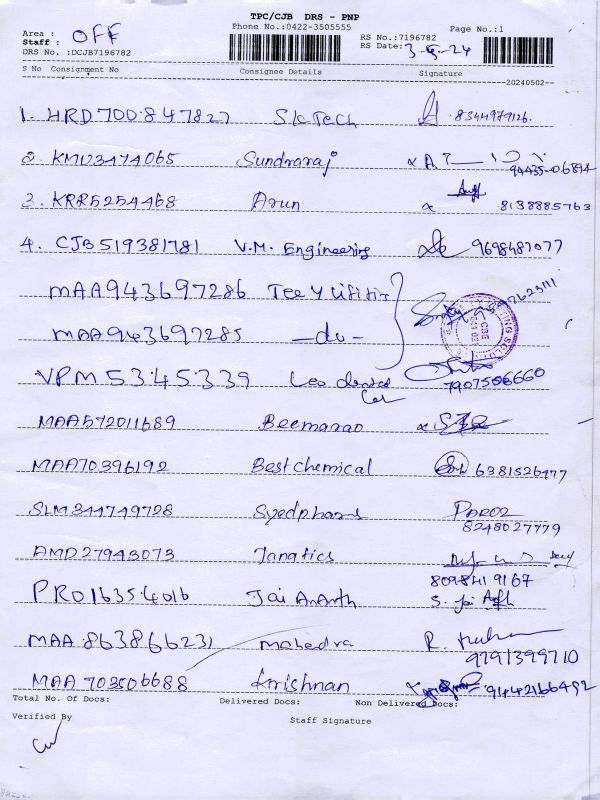 TPC/CJB DRS - PNP
Phone No.:0422-3505555
Area : OFF
Staff :
DRS No. :DCJB7196782
RS No.:7196782
RS Date: 3-5-24
Page No.:1
S No Consignment No Consignee Details Signature
20240502
1. HRD700847827 8344977126.
2. KMU3474065 Sundraraj 94435-06894
3. KRR5254468 Arun 8138885763
4. CJB519381781 V.M. Engineering 9698487077
MAA943697286
MAA943697285 -do-
VPM5345339 Leo dental 7907506660
MAA572011689 Beemarao
MAA70396192 Best chemical 6381526477
SLM344749728 Syedpharis 8248027779
AMD27943073 Janatics
8098419167
PRO16354016 Jai Ananth S. Jai
MAA863866231 Mahedra R.
9791399710
MAA703506688 Krrishnan 9442166492
Total No. Of Docs: Delivered Docs: Non Delivered Docs:
Verified By Staff Signature